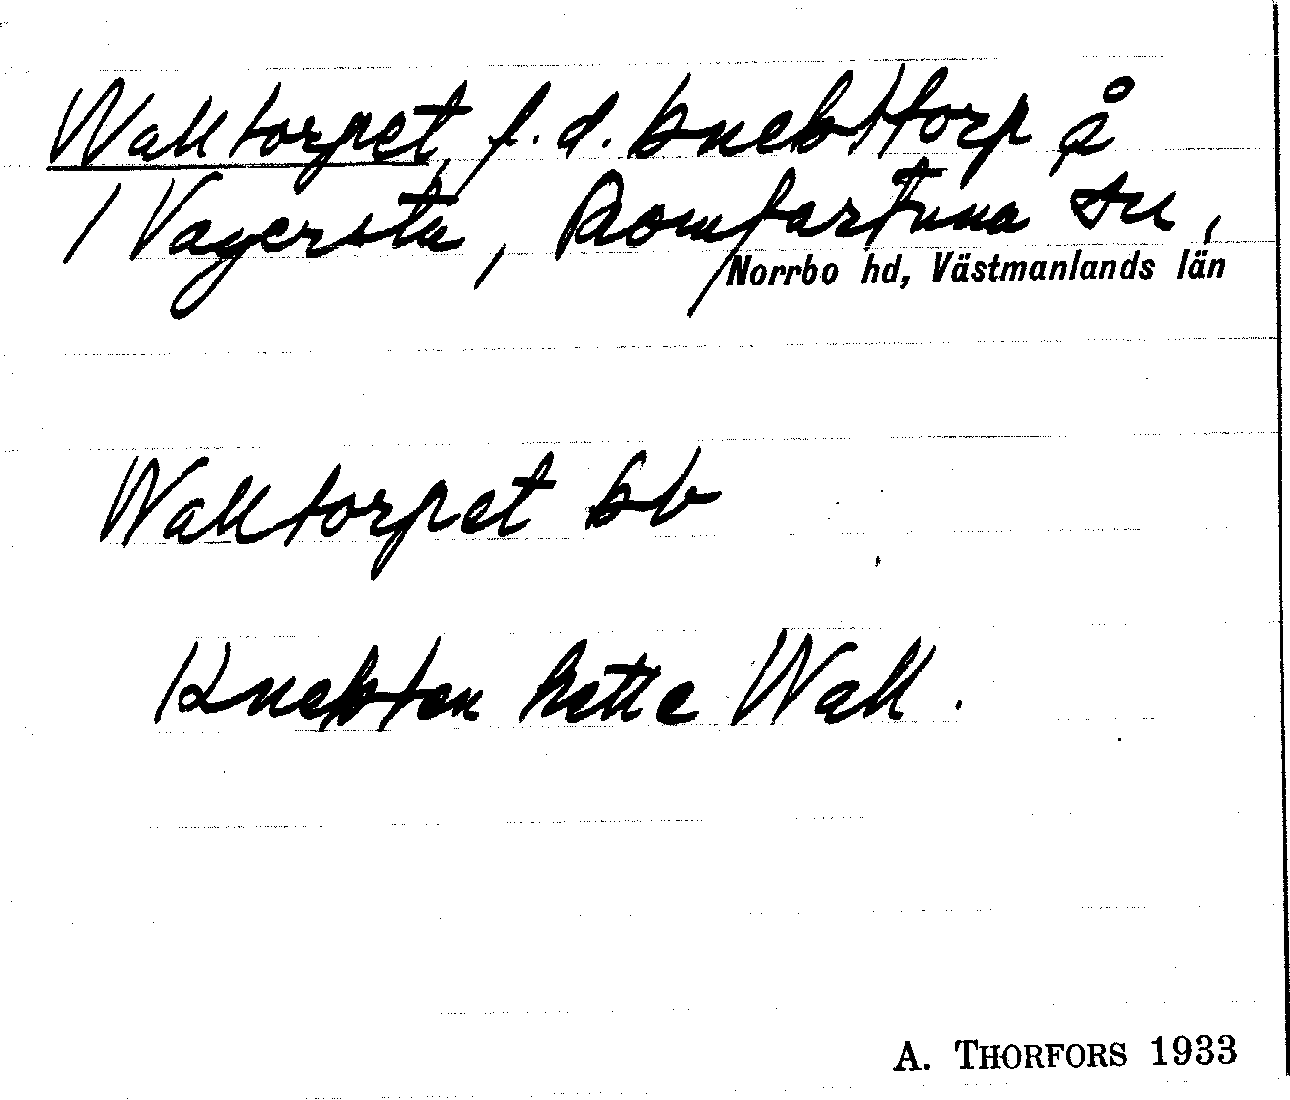 Walltorpet, f. d. knekttorp å
1 Vagersta, Romfartuna sn,
Norrbo hd, Västmanlands län
Walltorpet bb
Knekten hette Wall.
A. THORFORS 1933